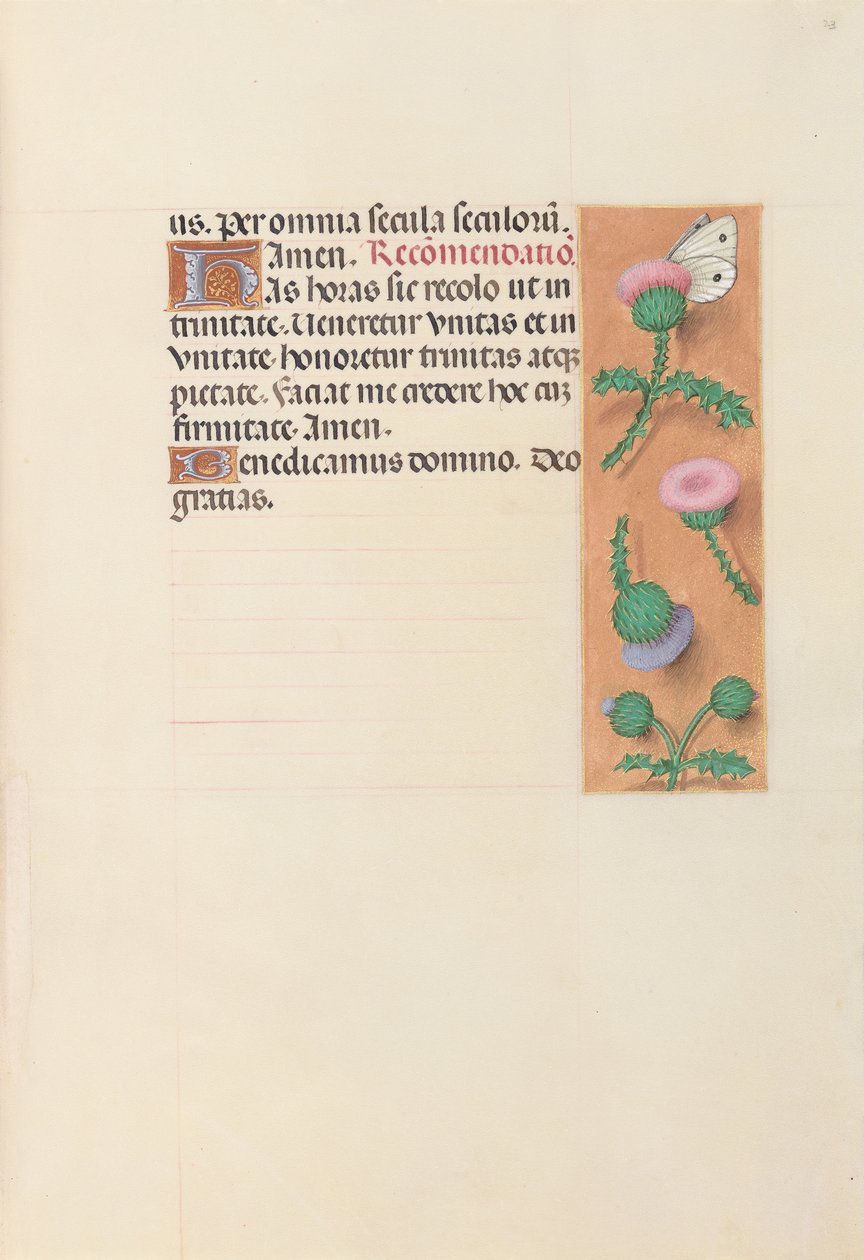 23
us. Per omnia secula seculorũ.
Amen. Recõmendatiõ
HAs horas sic recolo ut in
trinitate. Veneretur vnitas et in
vnitate honoretur trinitas atqꝫ
pietate. Faciat me credere hoc cuꝫ
firmitate Amen.
Benedicamus domino. Deo
gratias.